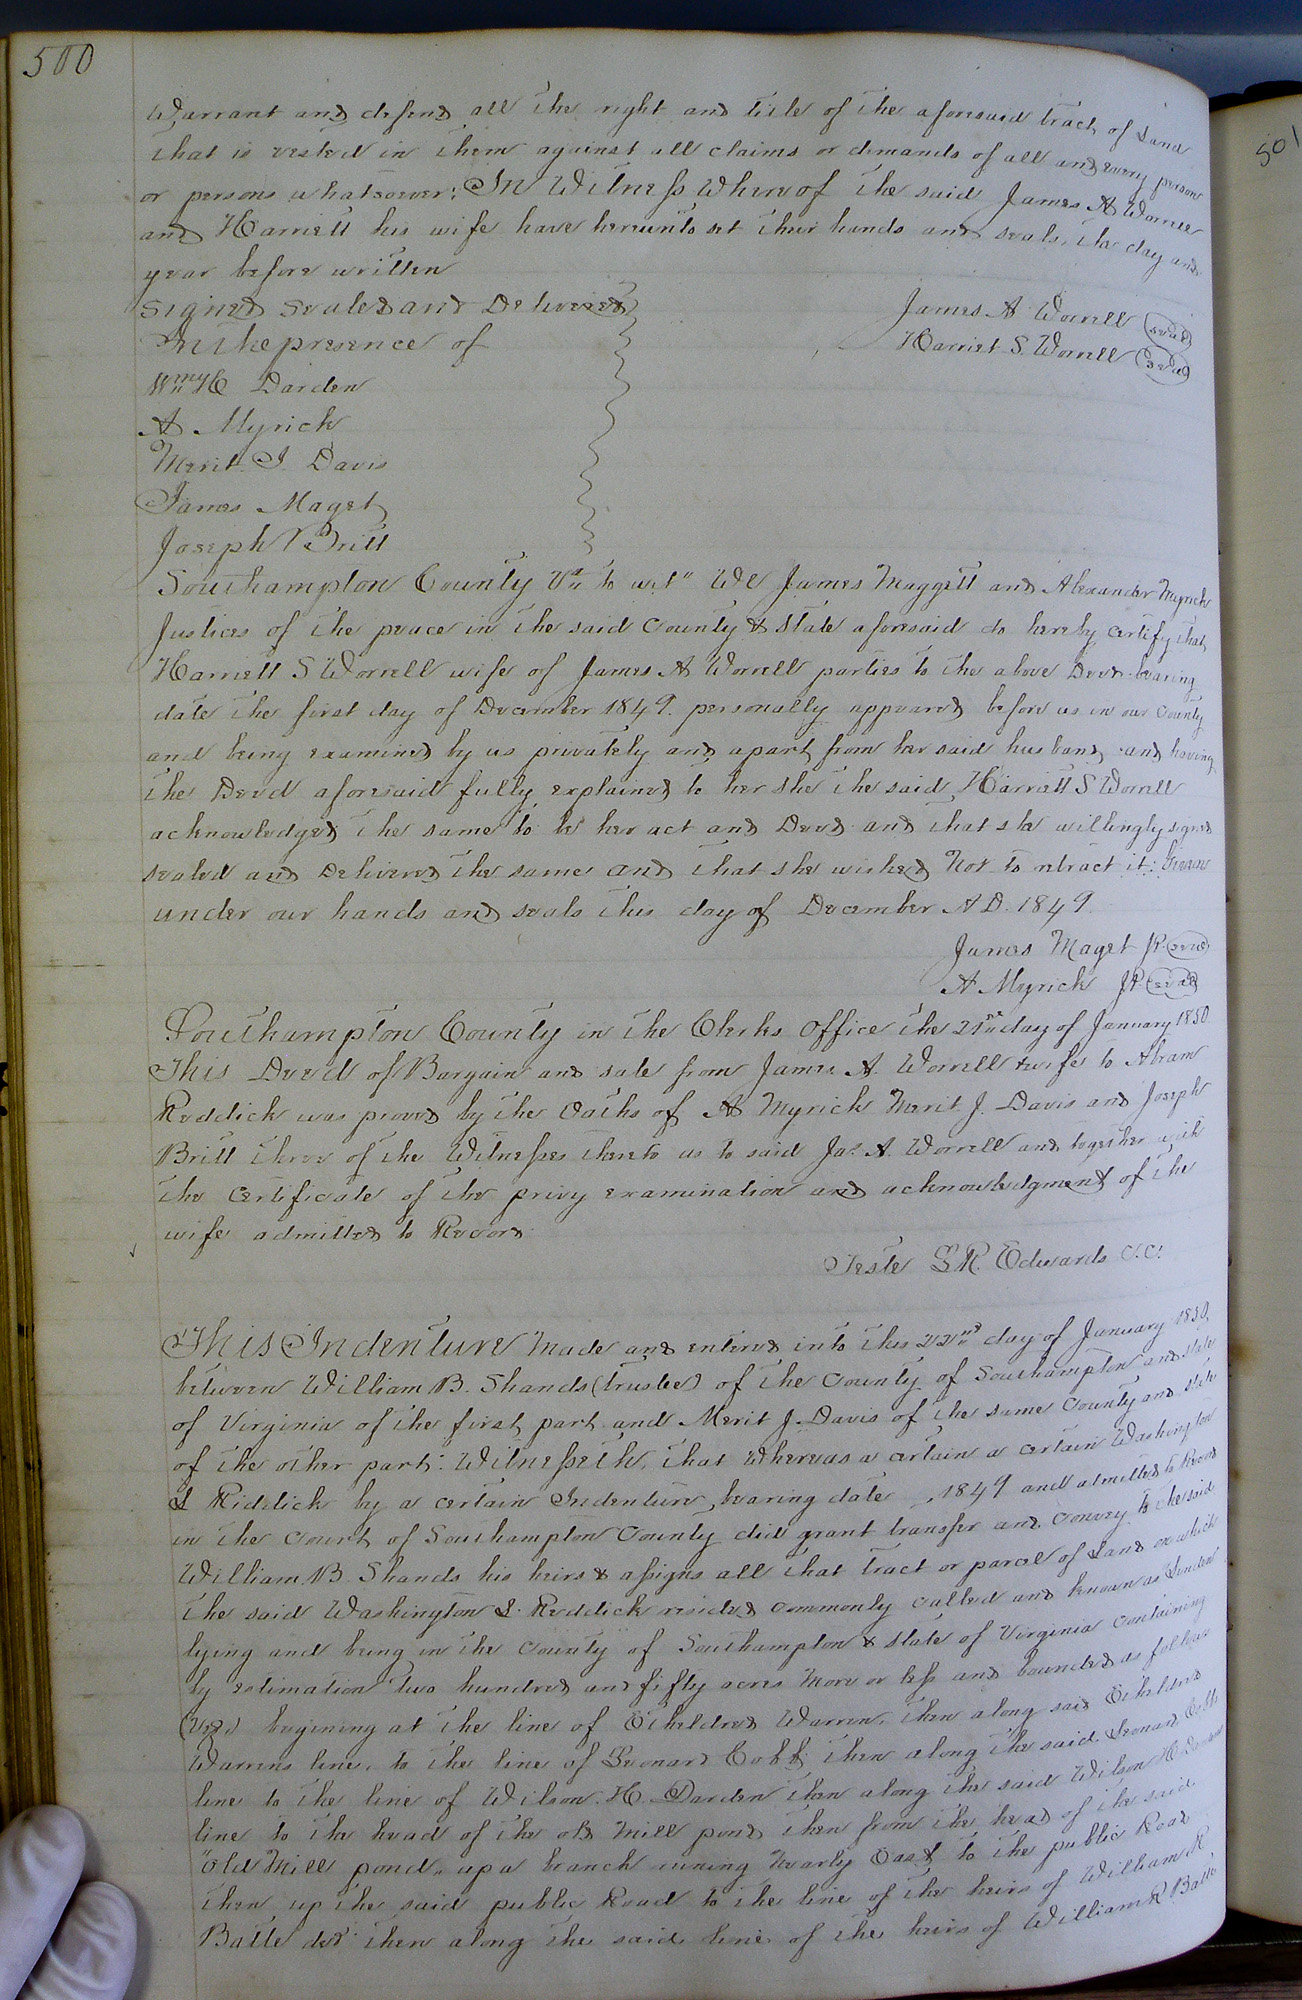 500
501
Warrant and defend all the right and title of the aforesaid tract of Land
that is vested in them against all claims or demands of all and every person
or persons whatsoever: In Witness Whereof the said James A Worrell
and Harriett his wife have hereunto set their hands and seals, the day and
year before written
Signed Sealed and Delivered
In the presence of
Wm H Darden
A Myrick
Merit J. Davis
James Maget
Joseph Britt
James A Worrell (seal)
Harriet S. Worrell (seal)
Southampton County Va to wit" We James Maggett and Alexander Myrick
Justices of the peace in the said County & State aforesaid do hereby certify that
Harriett S Worrell wife of James A Worrell parties to the above Deed bearing
date the first day of December 1849. personally appeared before us in our County
and being examined by us privately and apart from her said husband and having
the Deed aforesaid fully explained to her she the said Harriett S Worrell
acknowledged the same to be her act and Deed and that she willingly signed
sealed and Delivered the same and that she wished Not to retract it: Given
under our hands and seals this day of December A D. 1849.
James Maget JP. (seal)
A Myrick JP. (seal)
Southampton County in the Clerks Office the 21st day of January 1850
This Deed of Bargain and sale from James A. Worrell & wife to Abram
Reddick was proved by the Oaths of A Myrick Merit J. Davis and Joseph
Britt three of the Witnesses thereto as to said Jas. A. Worrell and together with
the certificate of the privy examination and acknowledgment of the
wife admitted to Record
Teste L R. Edwards C.C.
This Indenture Made and entered into this 22nd day of January 1850,
between William B. Shands (trustee) of the County of Southampton and state
of Virginia of the first part and Merit J. Davis of the same County and state
of the other part: Witnesseth, that whereas a certain a certain Washington
L Riddick by a certain Indenture, bearing date , 1849 and admitted to Record
in the Court of Southampton County did grant transfer and convey to the said
William B Shands his heirs & assigns all that tract or parcel of Land on which
the said Washington L. Reddick resided commonly called and known as
lying and being in the County of Southampton & state of Virginia containing
by estimation two hundred and fifty acres More or less and bounded as follows
(viz.) begining at the line of Etheldred Warren, then along said Etheldred
Warrens line, to the line of Leonard Cobb, then along the said Leonard Cobbs
line to the line of Wilson. H. Darden then along the said Wilson H Dardens
line to the head of the old Mill pond then from the head of the said
"old Mill pond, up a branch runing Nearly East to the public Road
then up the said public Road to the line of the heirs of William R
Batte decd. then along the said line of the heirs of William R Batte